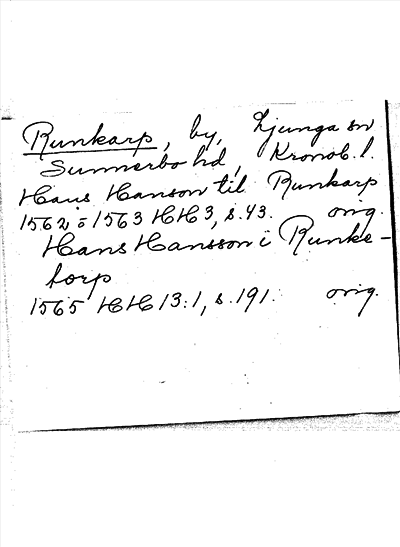 Runkarp, by, Ljunga sn
Sunnerbo hd, Kronob. l.
Hans Hanson til Runkarp
1562 o 1563 HH3, s. 43. orig.
Hans Hansson i Runke-
torp
1565 HH 13:1, s. 191. orig.